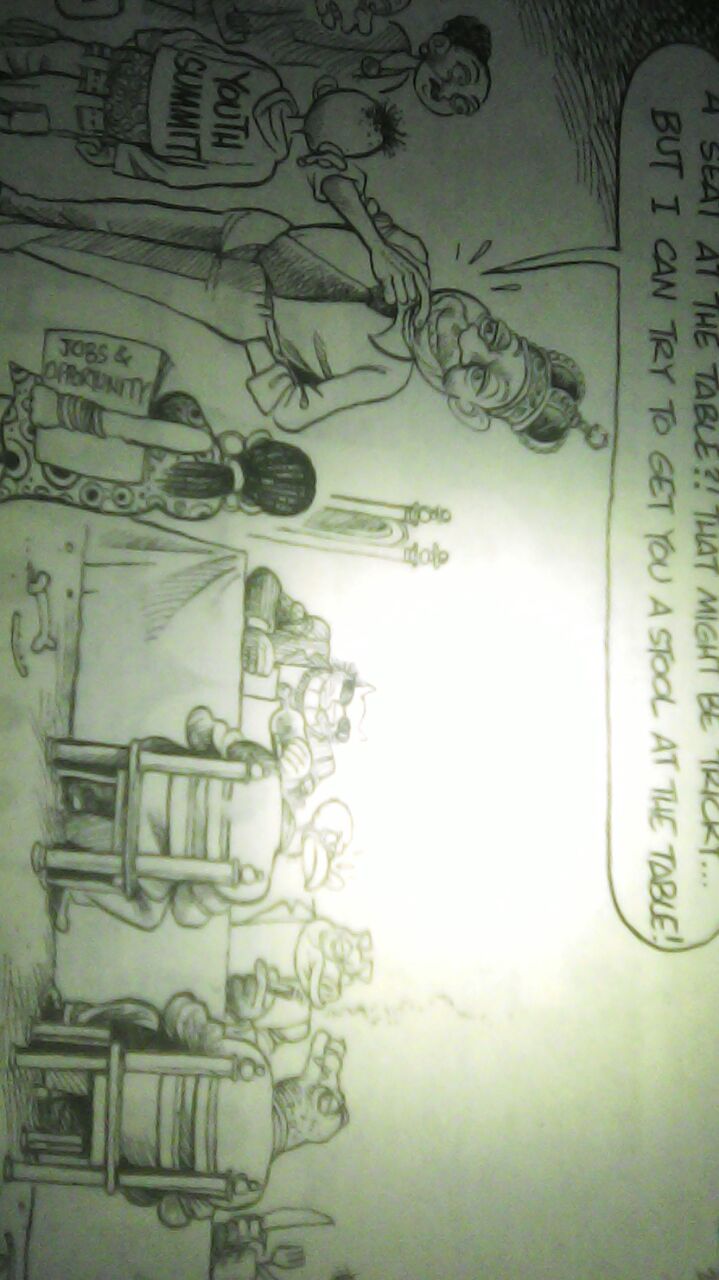 A SEAT AT THE TABLE?! THAT MIGHT BE TRICKY...
BUT I CAN TRY TO GET YOU A STOOL AT THE TABLE!
YOUTH
SUMMIT
JOBS &
OPPORTUNITY